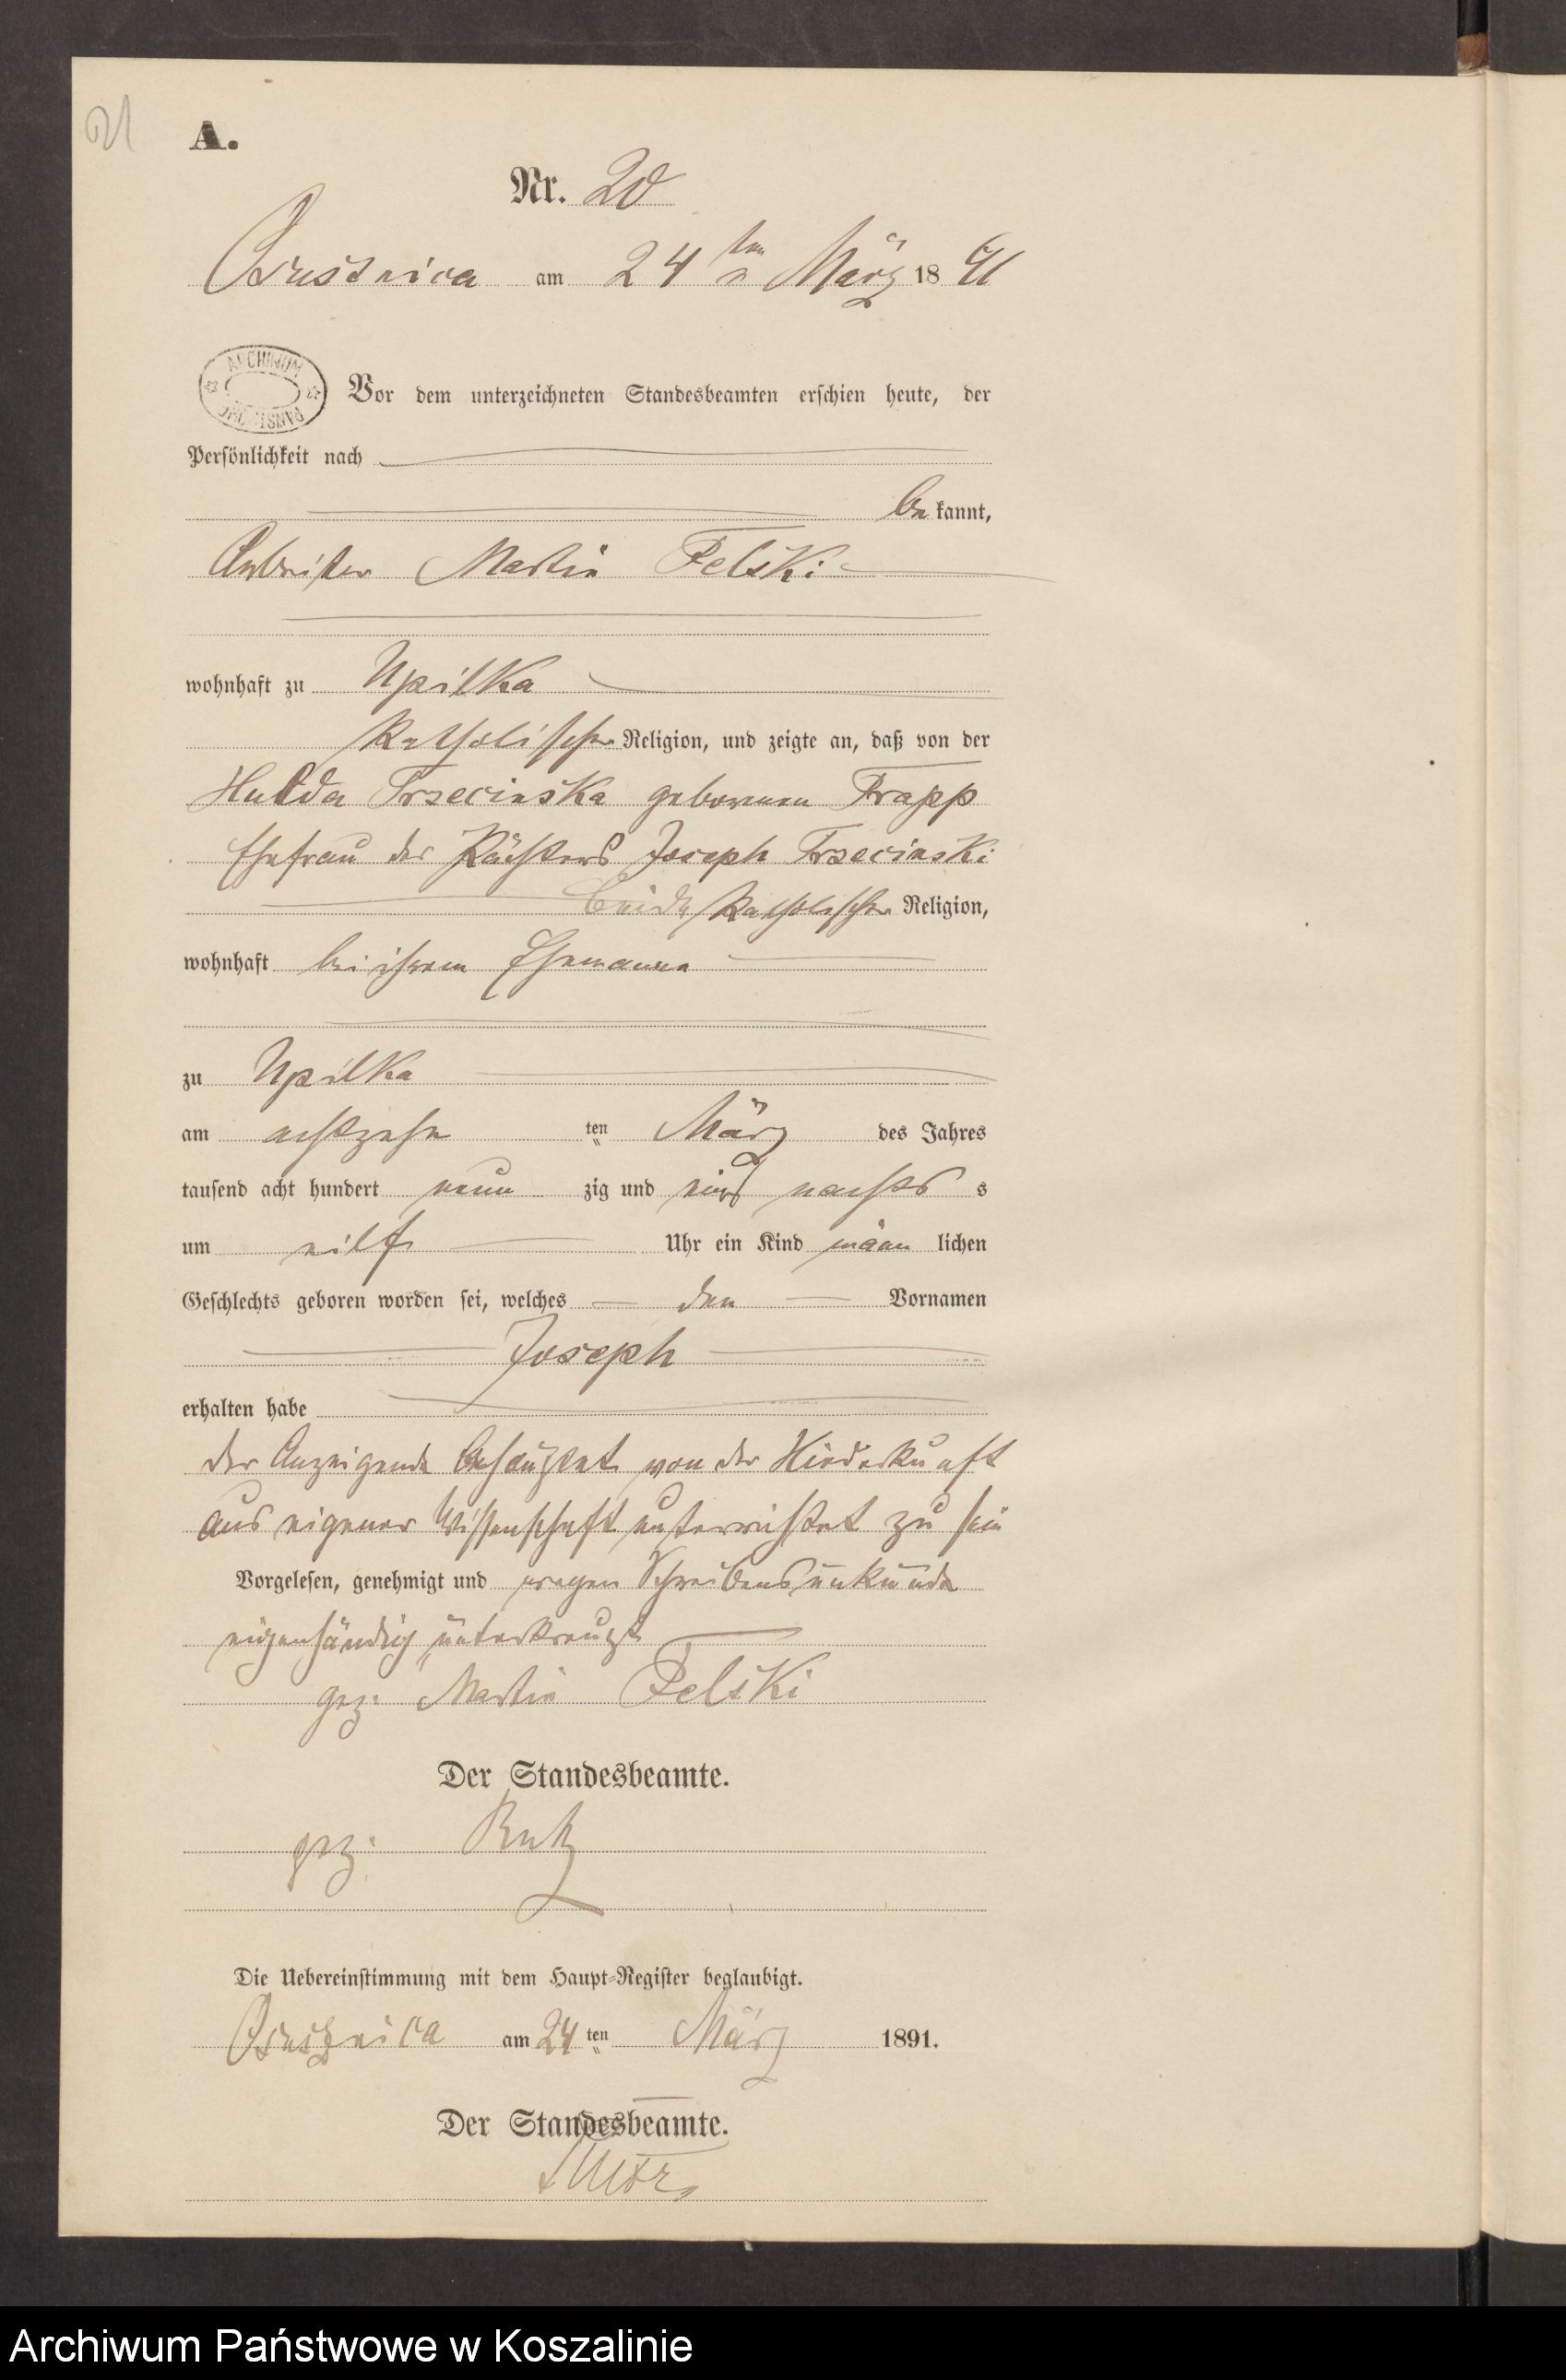 21
A.
Nr. 20
Ossusznica am 24ten März 18 91
ARCHIWUM PAŃSTWOWE
Vor dem unterzeichneten Standesbeamten erschien heute, der
Persönlichkeit nach
bekannt,
Arbeiter Martin Felski
wohnhaft zu Upilka
katholischer Religion, und zeigte an, daß von der
Hulda Trzecinska geborenen Trapp
Ehefrau des Pächters Joseph Trzecinski
beide katholischer Religion,
wohnhaft bei ihrem Ehemanne
zu Upilka
am achtzehn ten März des Jahres
tausend acht hundert neun zig und eins nachts s
um eilf Uhr ein Kind männ lichen
Geschlechts geboren worden sei, welches den Vornamen
Joseph
erhalten habe
der Anzeigende behauptet von der Niederkunft
aus eigener Wissenschaft unterrichtet zu sein
Vorgelesen, genehmigt und wegen Schreibensunkunde
eigenhändig unterkreuzt
gez: Martin Felski
Der Standesbeamte.
gez:
Die Uebereinstimmung mit dem Haupt-Register beglaubigt.
am 24 ten März 1891.
Der Standesbeamte.
Archiwum Państwowe w Koszalinie